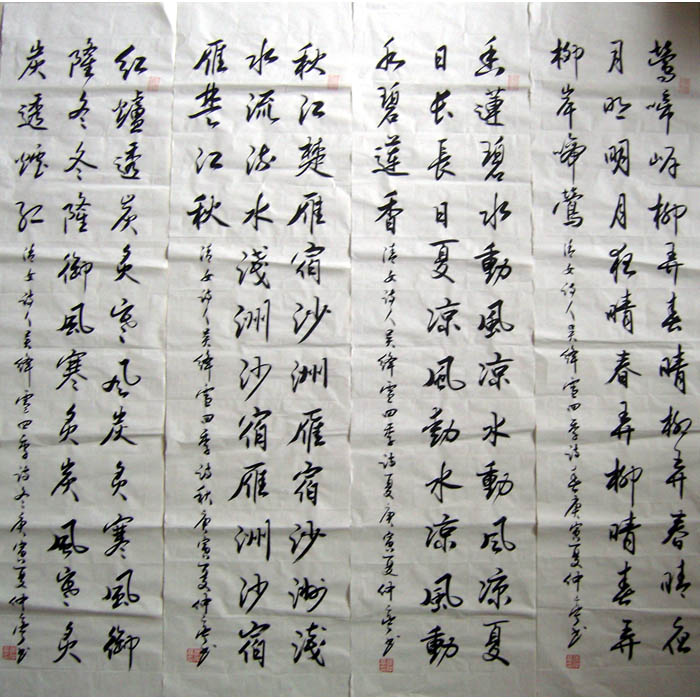 鶯啼岸柳弄春晴柳弄春晴夜
月明明月夜晴春弄柳晴春弄
柳岸啼鶯
清女诗人吴绛雪四季诗春庚寅夏仲书
香蓮碧水動風凉水動風凉夏
日長長日夏凉風動水凉風動
水碧蓮香
清女诗人吴绛雪四季诗夏庚寅夏仲书
秋江楚雁宿沙洲雁宿沙洲淺
水流流水淺洲沙宿雁洲沙宿
雁楚江秋
清女诗人吴绛雪四季诗秋庚寅夏仲书
红爐透炭炙寒风炭炙寒風御
隆冬冬隆御風寒炙炭風寒炙
炭透炉红
清女诗人吴绛雪四季诗冬庚寅夏仲书